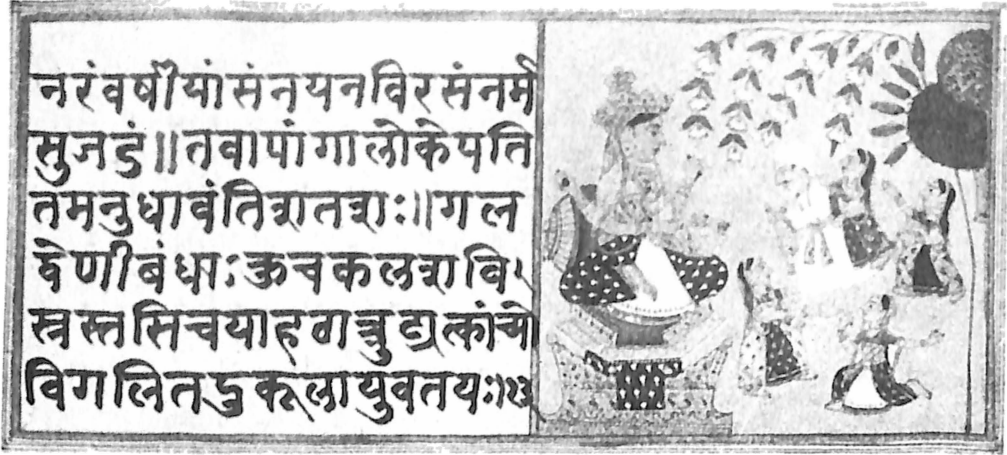 नरंवर्षीयांसंनयनविरसंनर्म
सुजडं॥तवापांगालोकेपति
तमनुधावंतिशतशः॥गल
द्वेणीबंधाःकुचकलशवि
स्रस्तसिचयाहठात्त्रुट्यत्कांच्यो
विगलितदुकूलायुवतयः॥१३